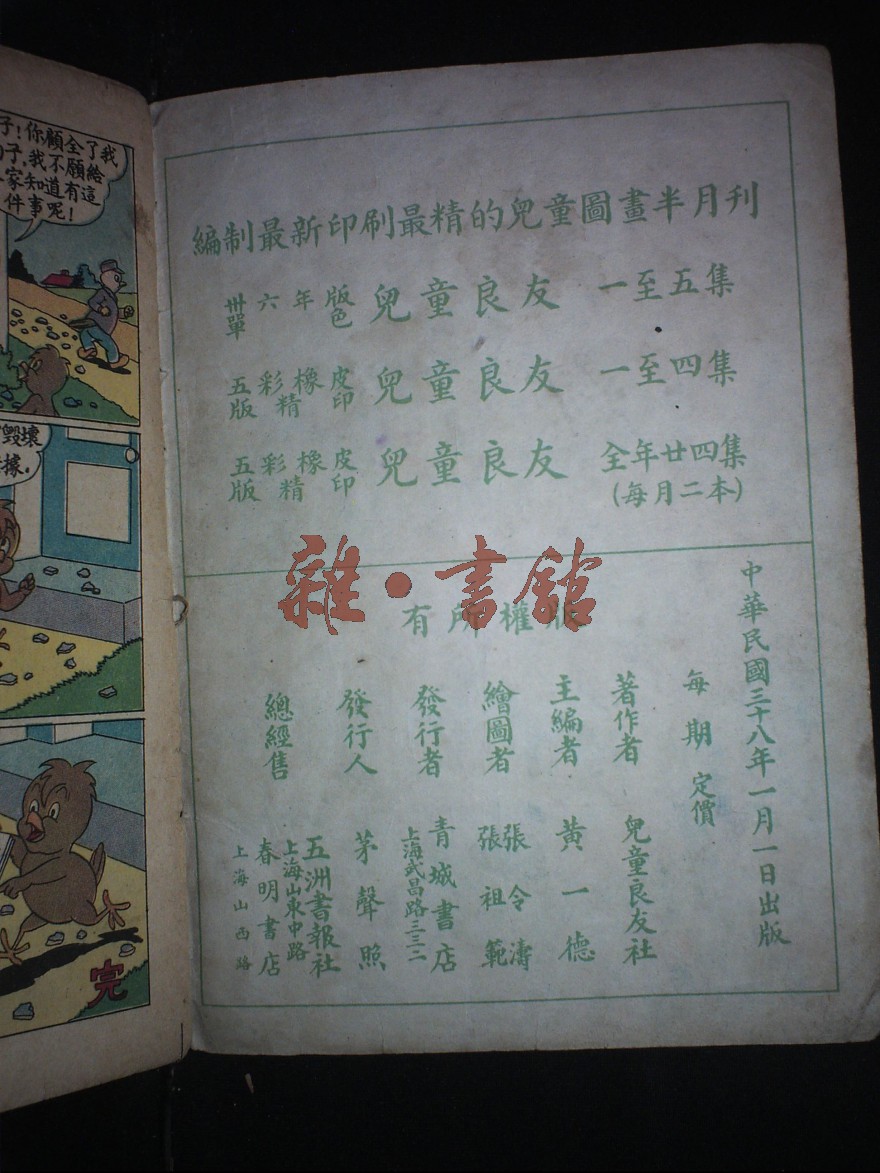 子!你顧全了我
子,我不願給
家知道有這
件事呢!
毀壞
據.
完
編制最新印刷最精的兒童圖畫半月刊
卅六年版單色 兒童良友 一至五集
五彩橡皮版精印 兒童良友 一至四集
五彩橡皮版精印 兒童良友 全年廿四集
(每月二本)
雜·書館
有所權版
中華民國三十八年一月一日出版
每期定價
著作者 兒童良友社
主編者 黃一德
繪圖者 張令濤
張祖範
發行者 青城書店
上海武昌路三三二
發行人 茅聲照
總經售 五洲書報社
上海山東中路
春明書店
上海山西路